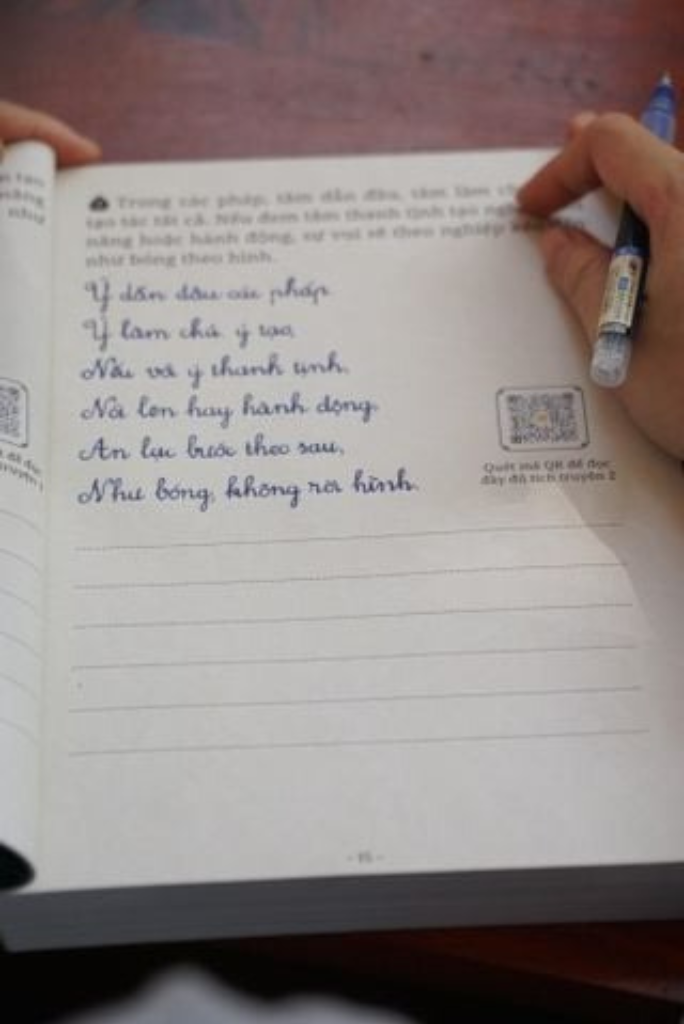 Trong các pháp, tâm dẫn đầu, tâm làm
tạo tác tất cả. Nếu đem tâm thanh tịnh tạo
năng hoặc hành động, sự vui sẽ theo nghiệp
như bóng theo hình.
Ý dẫn đầu các pháp
Ý làm chủ, ý tạo,
Nếu với ý thanh tịnh,
Nói lên hay hành động,
An lạc bước theo sau,
Như bóng, không rời hình.
Quét mã QR để đọc
đầy đủ tích truyện 2
- 15 -